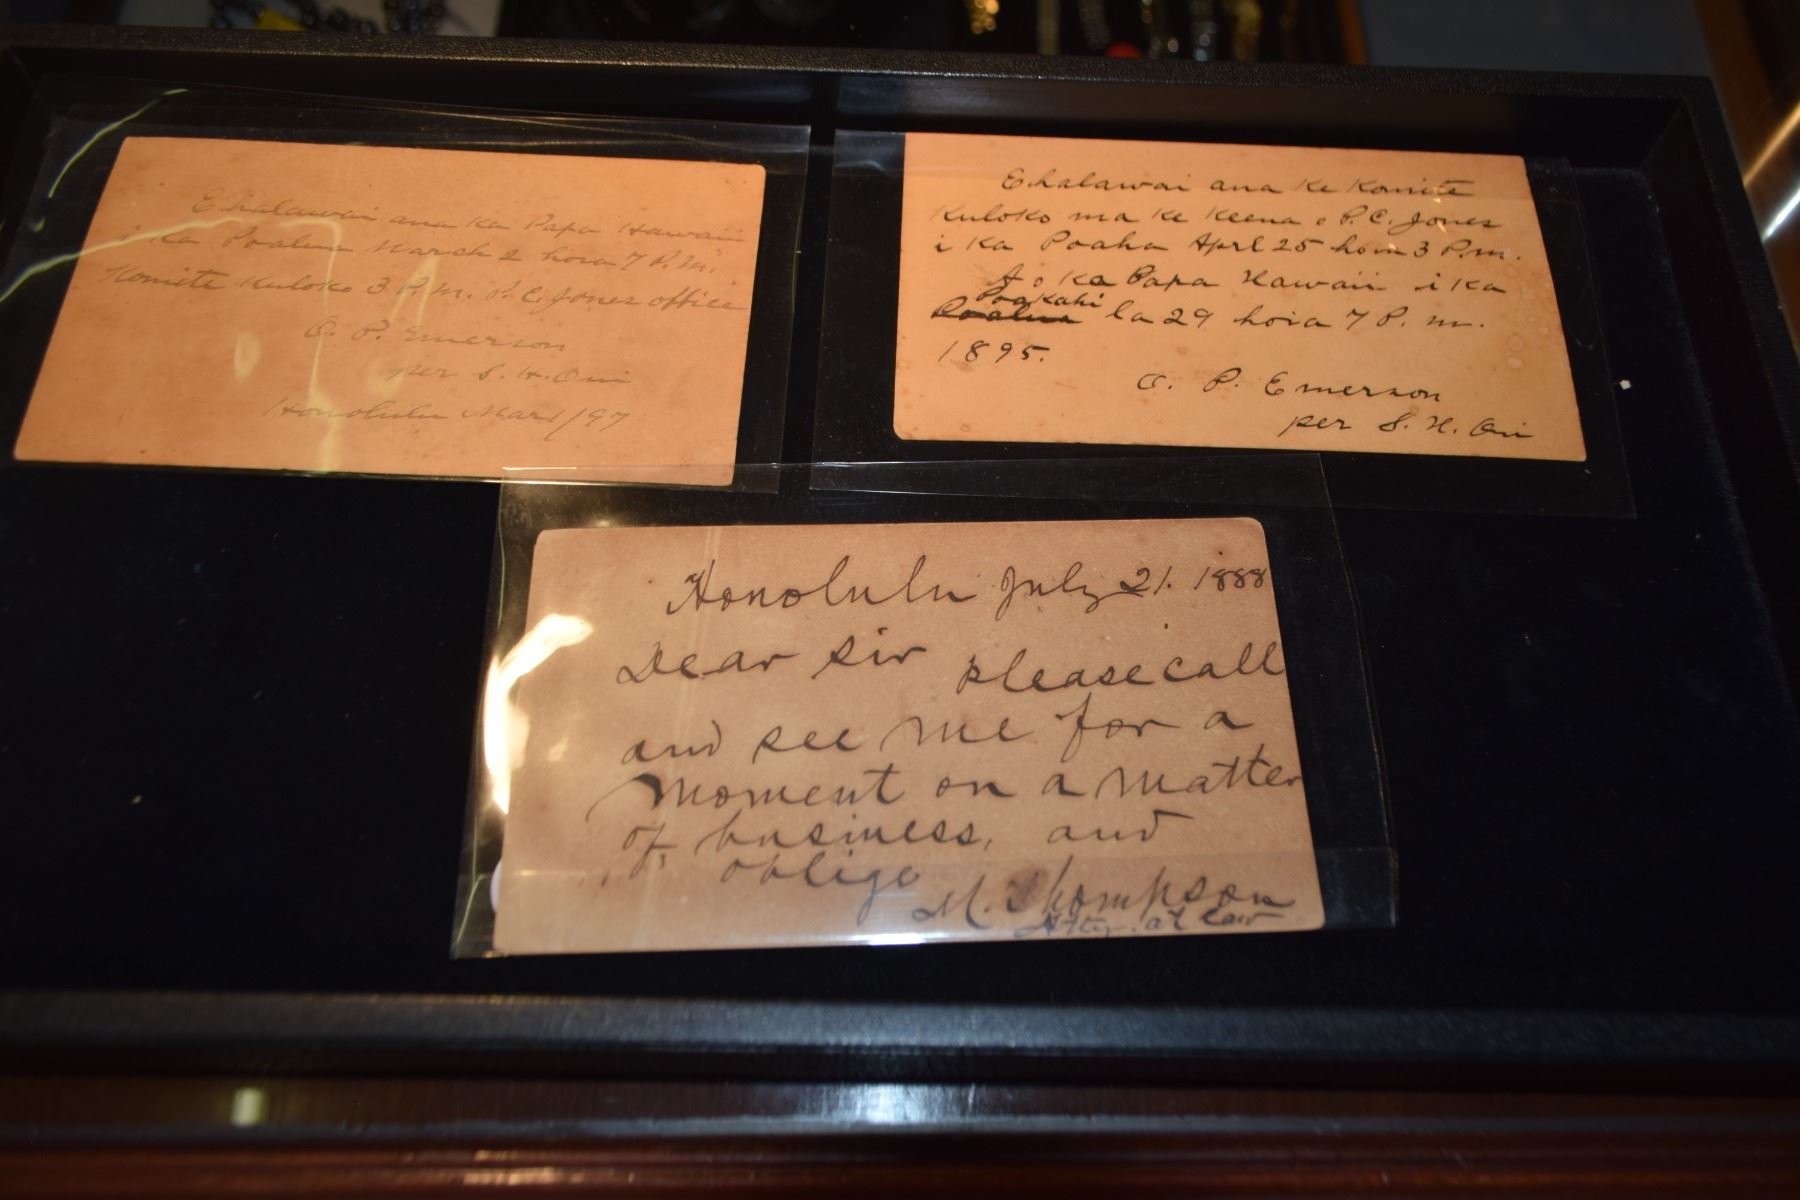 E halawai ana ka Papa Hawaii
i ka Poalua March 2 hora 7 P.M.
Komite Kuloko 3 P.M. P. C. Jones office
O. P. Emerson
per S. H. Oni
Honolulu Mar 1/97
E halawai ana ke Komite
Kuloko ma ke Keena o P. C. Jones
i ka Poaha Aprl 25 hora 3 P.m.
A o ka Papa Hawaii i ka
Poakahi
Poalua la 29 hora 7 P. m.
1895.
O. P. Emerson
per S. H. Oni
Honolulu July 21. 1888
Dear Sir please call
and see me for a
moment on a matter
of business, and
oblige
M. Thompson
Atty. at Law